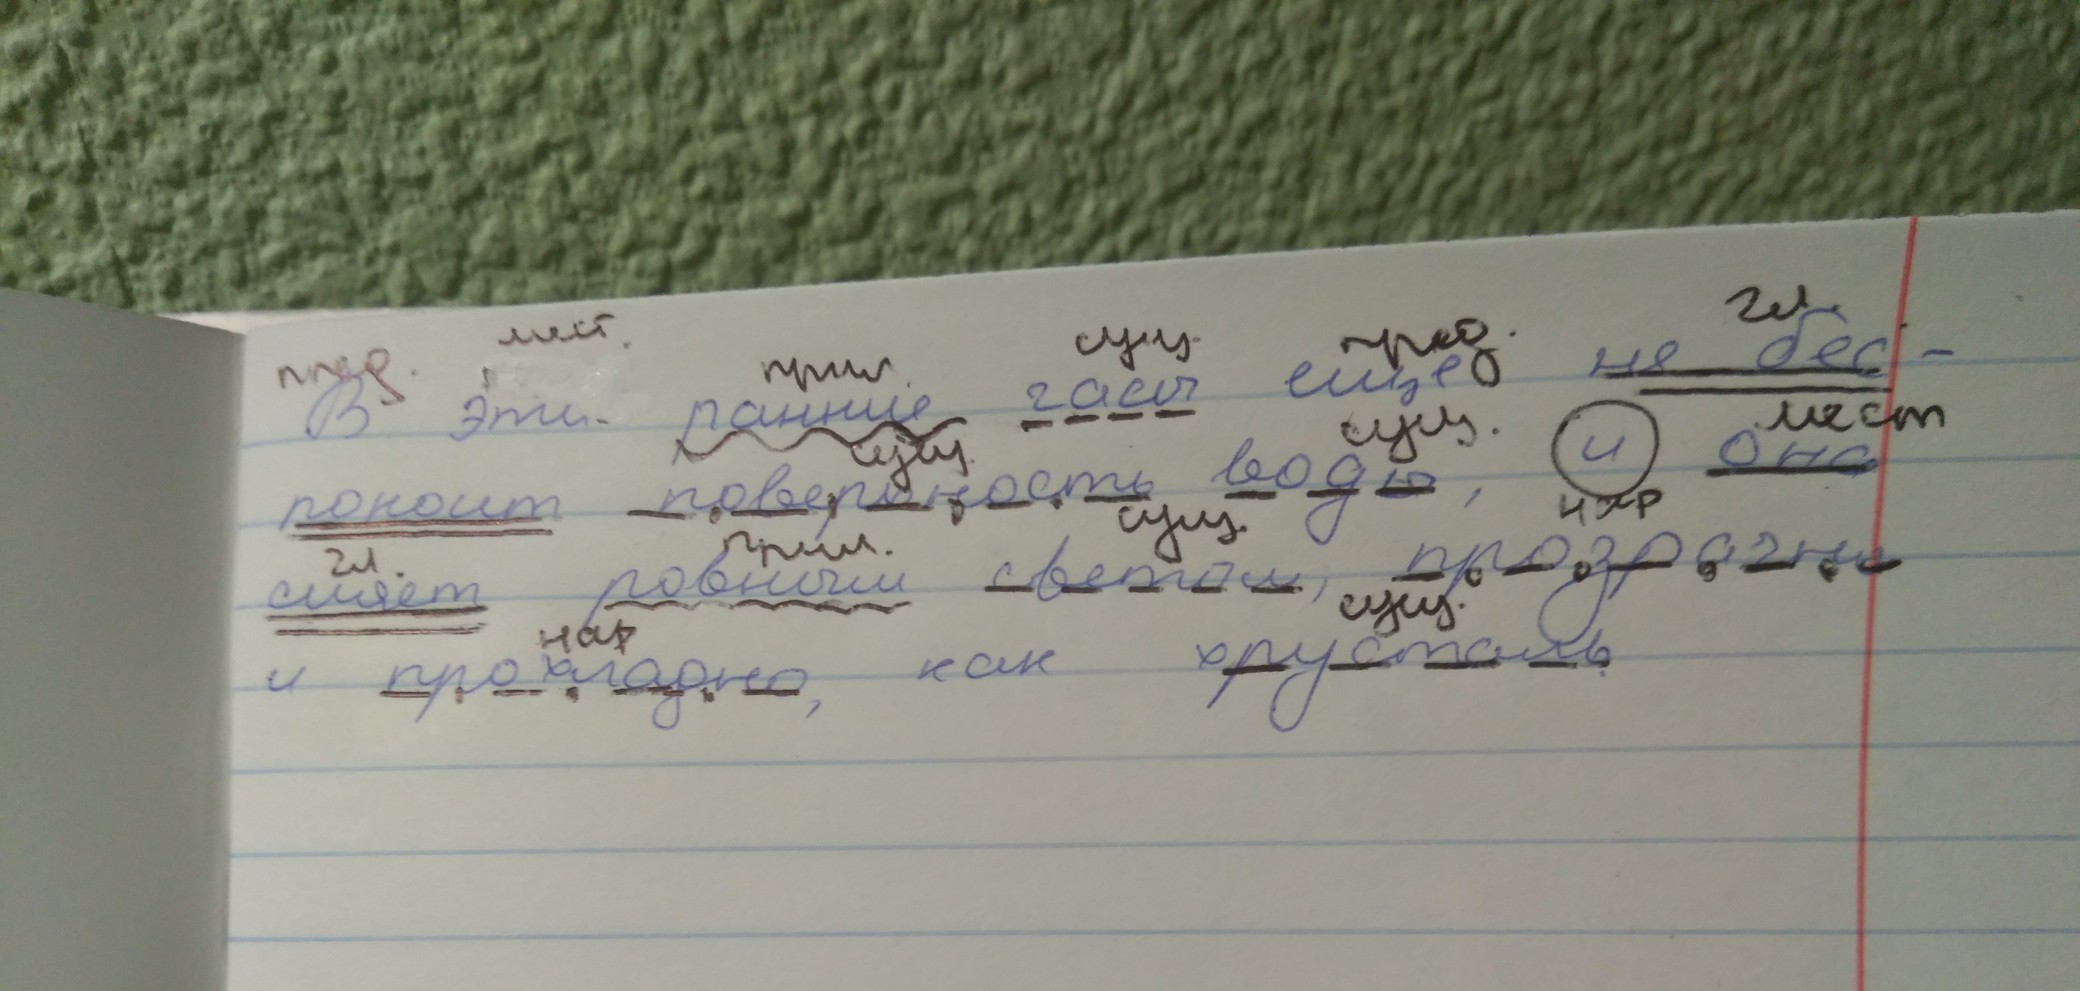 пред. мест. прил. сущ. гл.
В эти ранние часы еще не бес-
сущ. сущ. мест
покоит поверхность воды, и она
гл. прил. сущ. нар
сияет ровным светом, прозрачно
нар сущ.
и прохладно, как хрусталь.